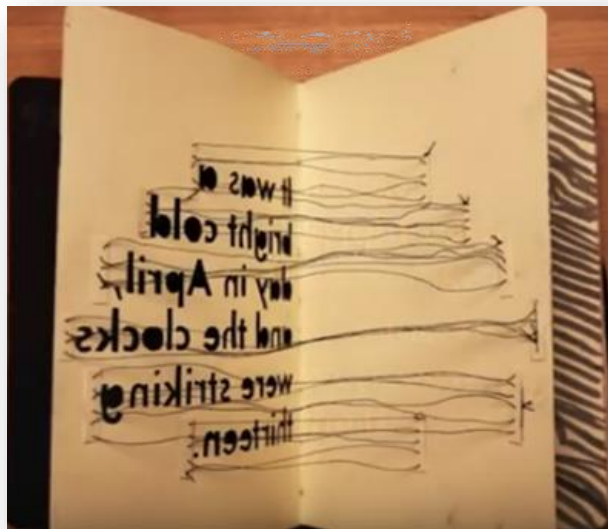 It was a
bright cold
day in April,
and the clocks
were striking
thirteen.